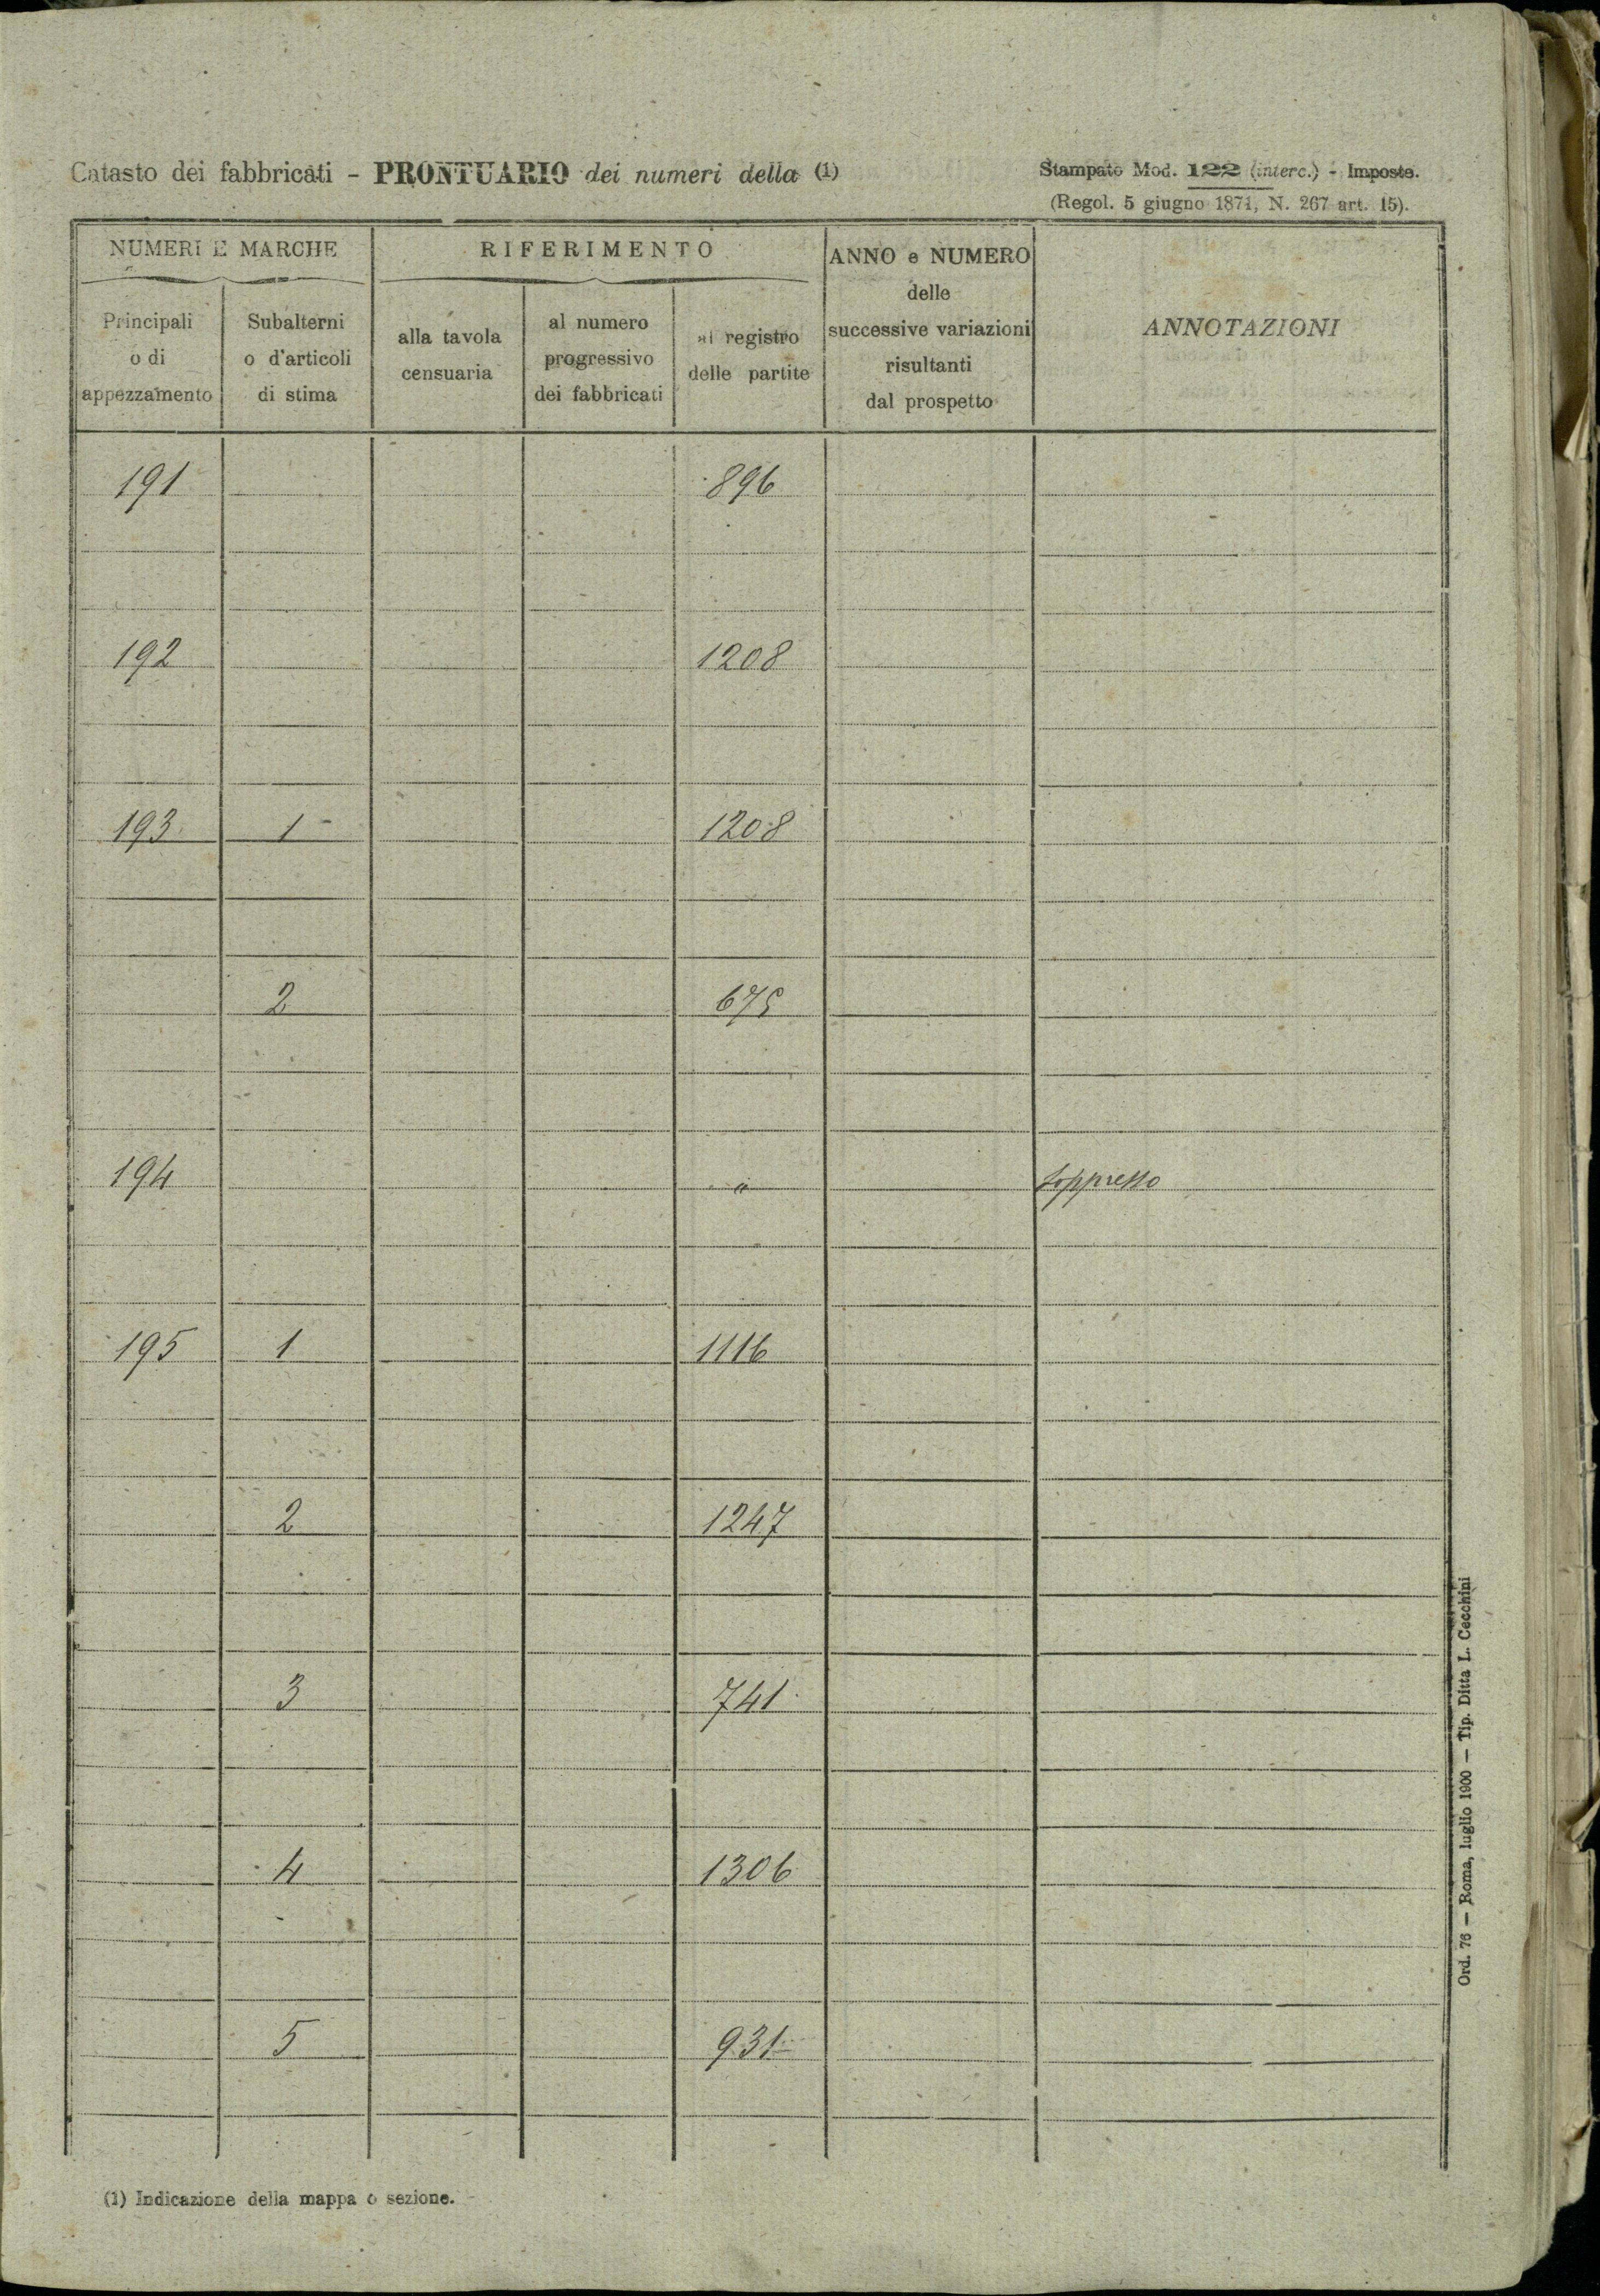 Catasto dei fabbricati - PRONTUARIO dei numeri della (1)
Stampato Mod. 122 (interc.) - Imposte.
(Regol. 5 giugno 1871, N. 267 art. 15).
NUMERI E MARCHE
RIFERIMENTO
ANNO e NUMERO
delle
successive variazioni
risultanti
dal prospetto
ANNOTAZIONI
Principali
o di
appezzamento
Subalterni
o d'articoli
di stima
alla tavola
censuaria
al numero
progressivo
dei fabbricati
al registro
delle partite
191 896
192 1208
193 1 1208
2 675
194 " soppresso
195 1 1116
2 1247
3 741
4 1306
5 931
(1) Indicazione della mappa o sezione.
Ord. 76 — Roma, luglio 1900 — Tip. Ditta L. Cecchini